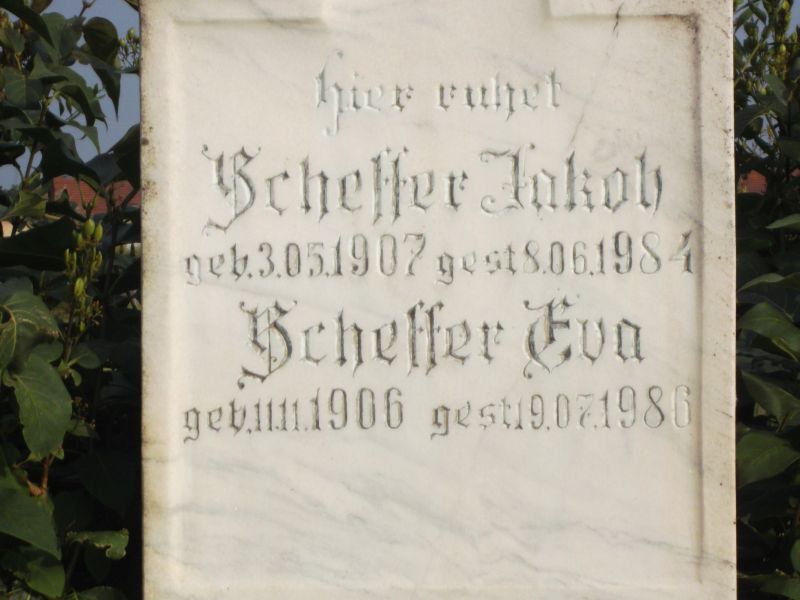 hier ruhet
Scheffer Jakob
geb.3.05.1907 gest8.06.1984
Scheffer Eva
geb.11.11.1906 gest.19.07.1986